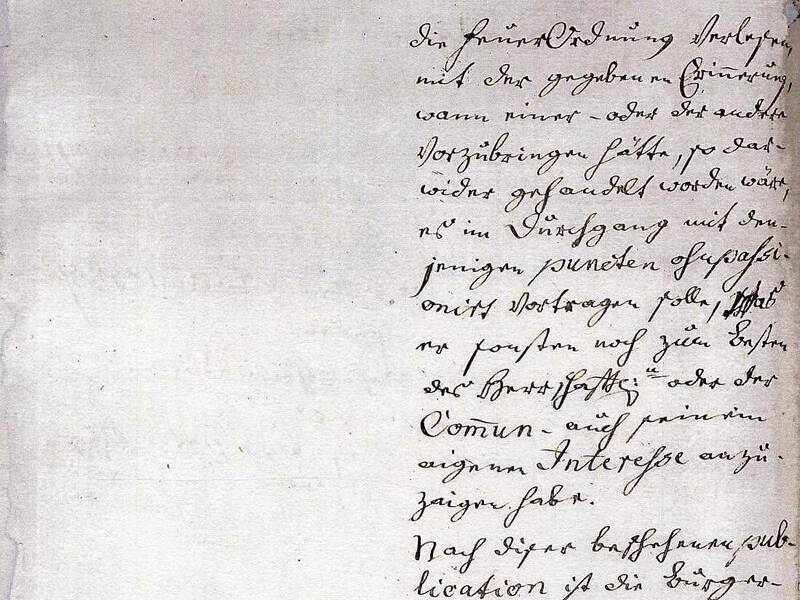 die FeuerOrdnung Verlesen,
mit der gegebenen Erinnerung,
wann einer - oder der andere
Vorzubringen hätte, so dar-
wider gehandelt worden wäre,
es im Durchgang mit den-
jenigen puncten ohnpassi-
onirt Vortragen solle, Was
er sonsten noch zum Besten
des Herrschaftl: oder der
Com̄un - auch seinem
aigenen Interesse anzu-
zaigen habe.
Nach diser beschehenen pub-
lication ist die Burger-